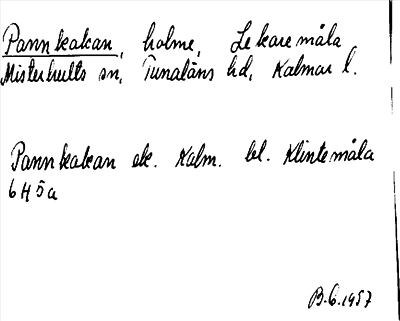 Pannkakan, holme, Lekaremåla
Misterhults sn, Tunaläns hd, Kalmar l.
Pannkakan ek. Kalm. bl. Klintemåla
6H5a
B.G.1957